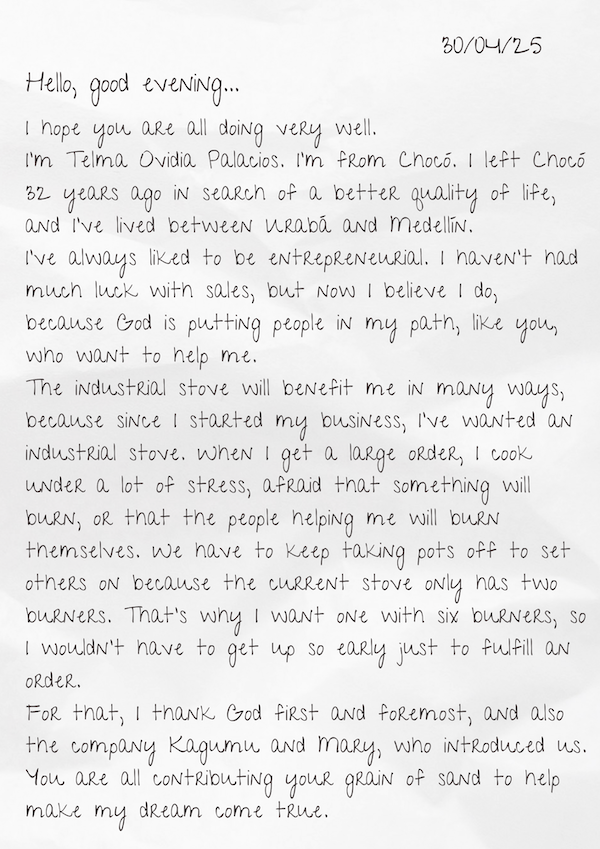 30/04/25
Hello, good evening...
I hope you are all doing very well.
I'm Telma Ovidia Palacios. I'm from Chocó. I left Chocó
32 years ago in search of a better quality of life,
and I've lived between Urabá and Medellín.
I've always liked to be entrepreneurial. I haven't had
much luck with sales, but now I believe I do,
because God is putting people in my path, like you,
who want to help me.
The industrial stove will benefit me in many ways,
because since I started my business, I've wanted an
industrial stove. When I get a large order, I cook
under a lot of stress, afraid that something will
burn, or that the people helping me will burn
themselves. We have to keep taking pots off to set
others on because the current stove only has two
burners. That's why I want one with six burners, so
I wouldn't have to get up so early just to fulfill an
order.
For that, I thank God first and foremost, and also
the company Kagumu and Mary, who introduced us.
You are all contributing your grain of sand to help
make my dream come true.